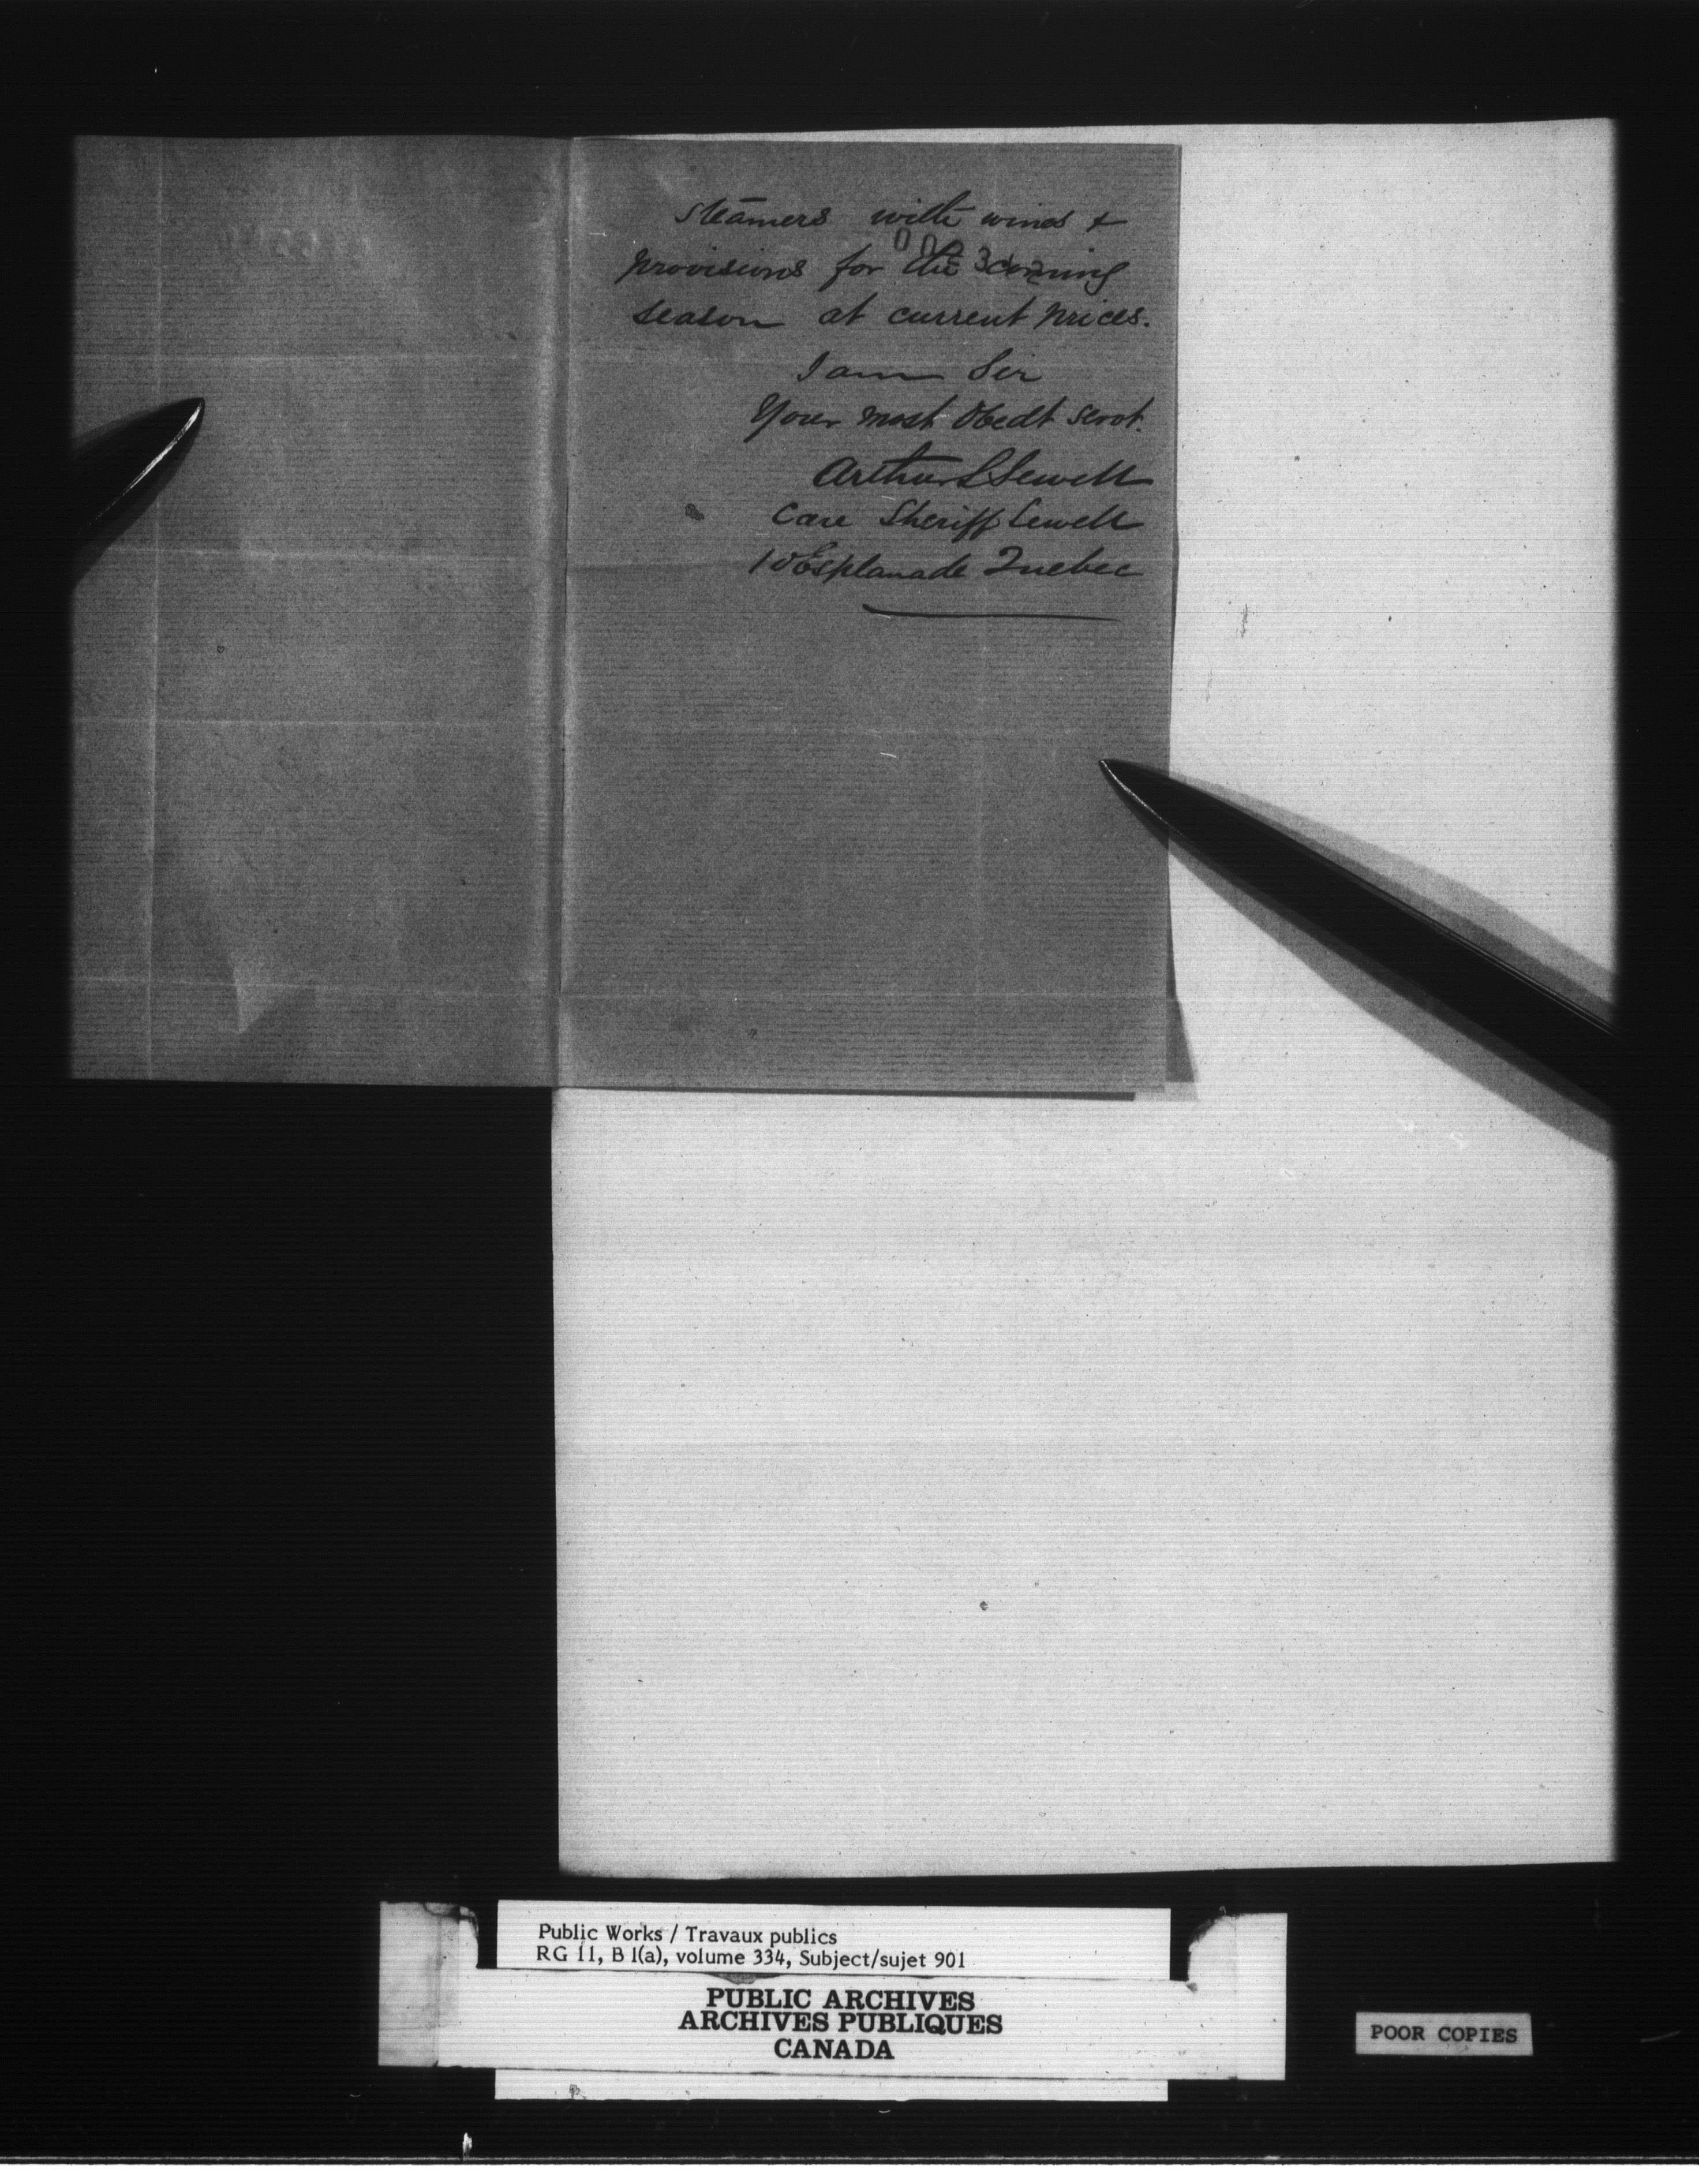 Steamers with wines &
provisions for the coming
season at current prices.
I am Sir
Your most Obedt servt.
Arthur L Sewell
Care Sheriff Sewell
Esplanade Quebec
Public Works / Travaux publics
RG 11, B 1(a), volume 334, Subject/sujet 901
PUBLIC ARCHIVES
ARCHIVES PUBLIQUES
CANADA
POOR COPIES